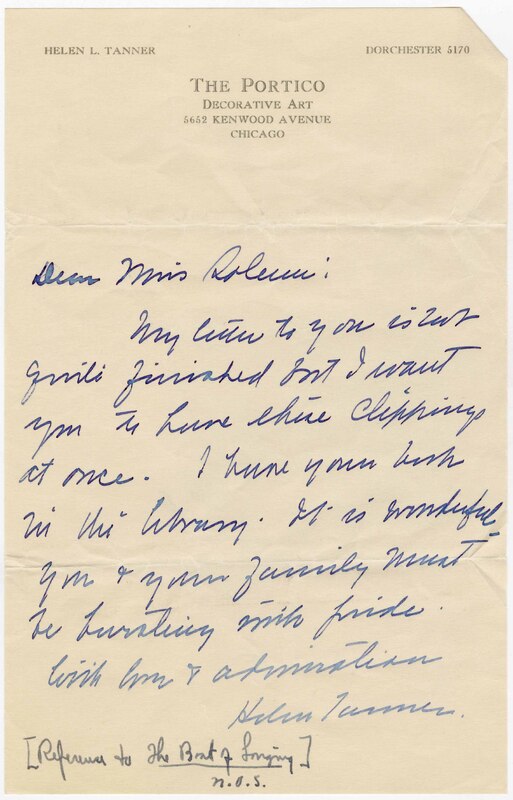 HELEN L. TANNER
DORCHESTER 5170
THE PORTICO
DECORATIVE ART
5652 KENWOOD AVENUE
CHICAGO
Dear Miss Solum:
My letter to you is not
quite finished but I want
you to have these clippings
at once. I have your book
in the library. It is wonderful-
you & your family must
be bursting with pride.
With love & admiration
Helen Tanner.
[Reference to The Boat of Longing]
N.O.S.